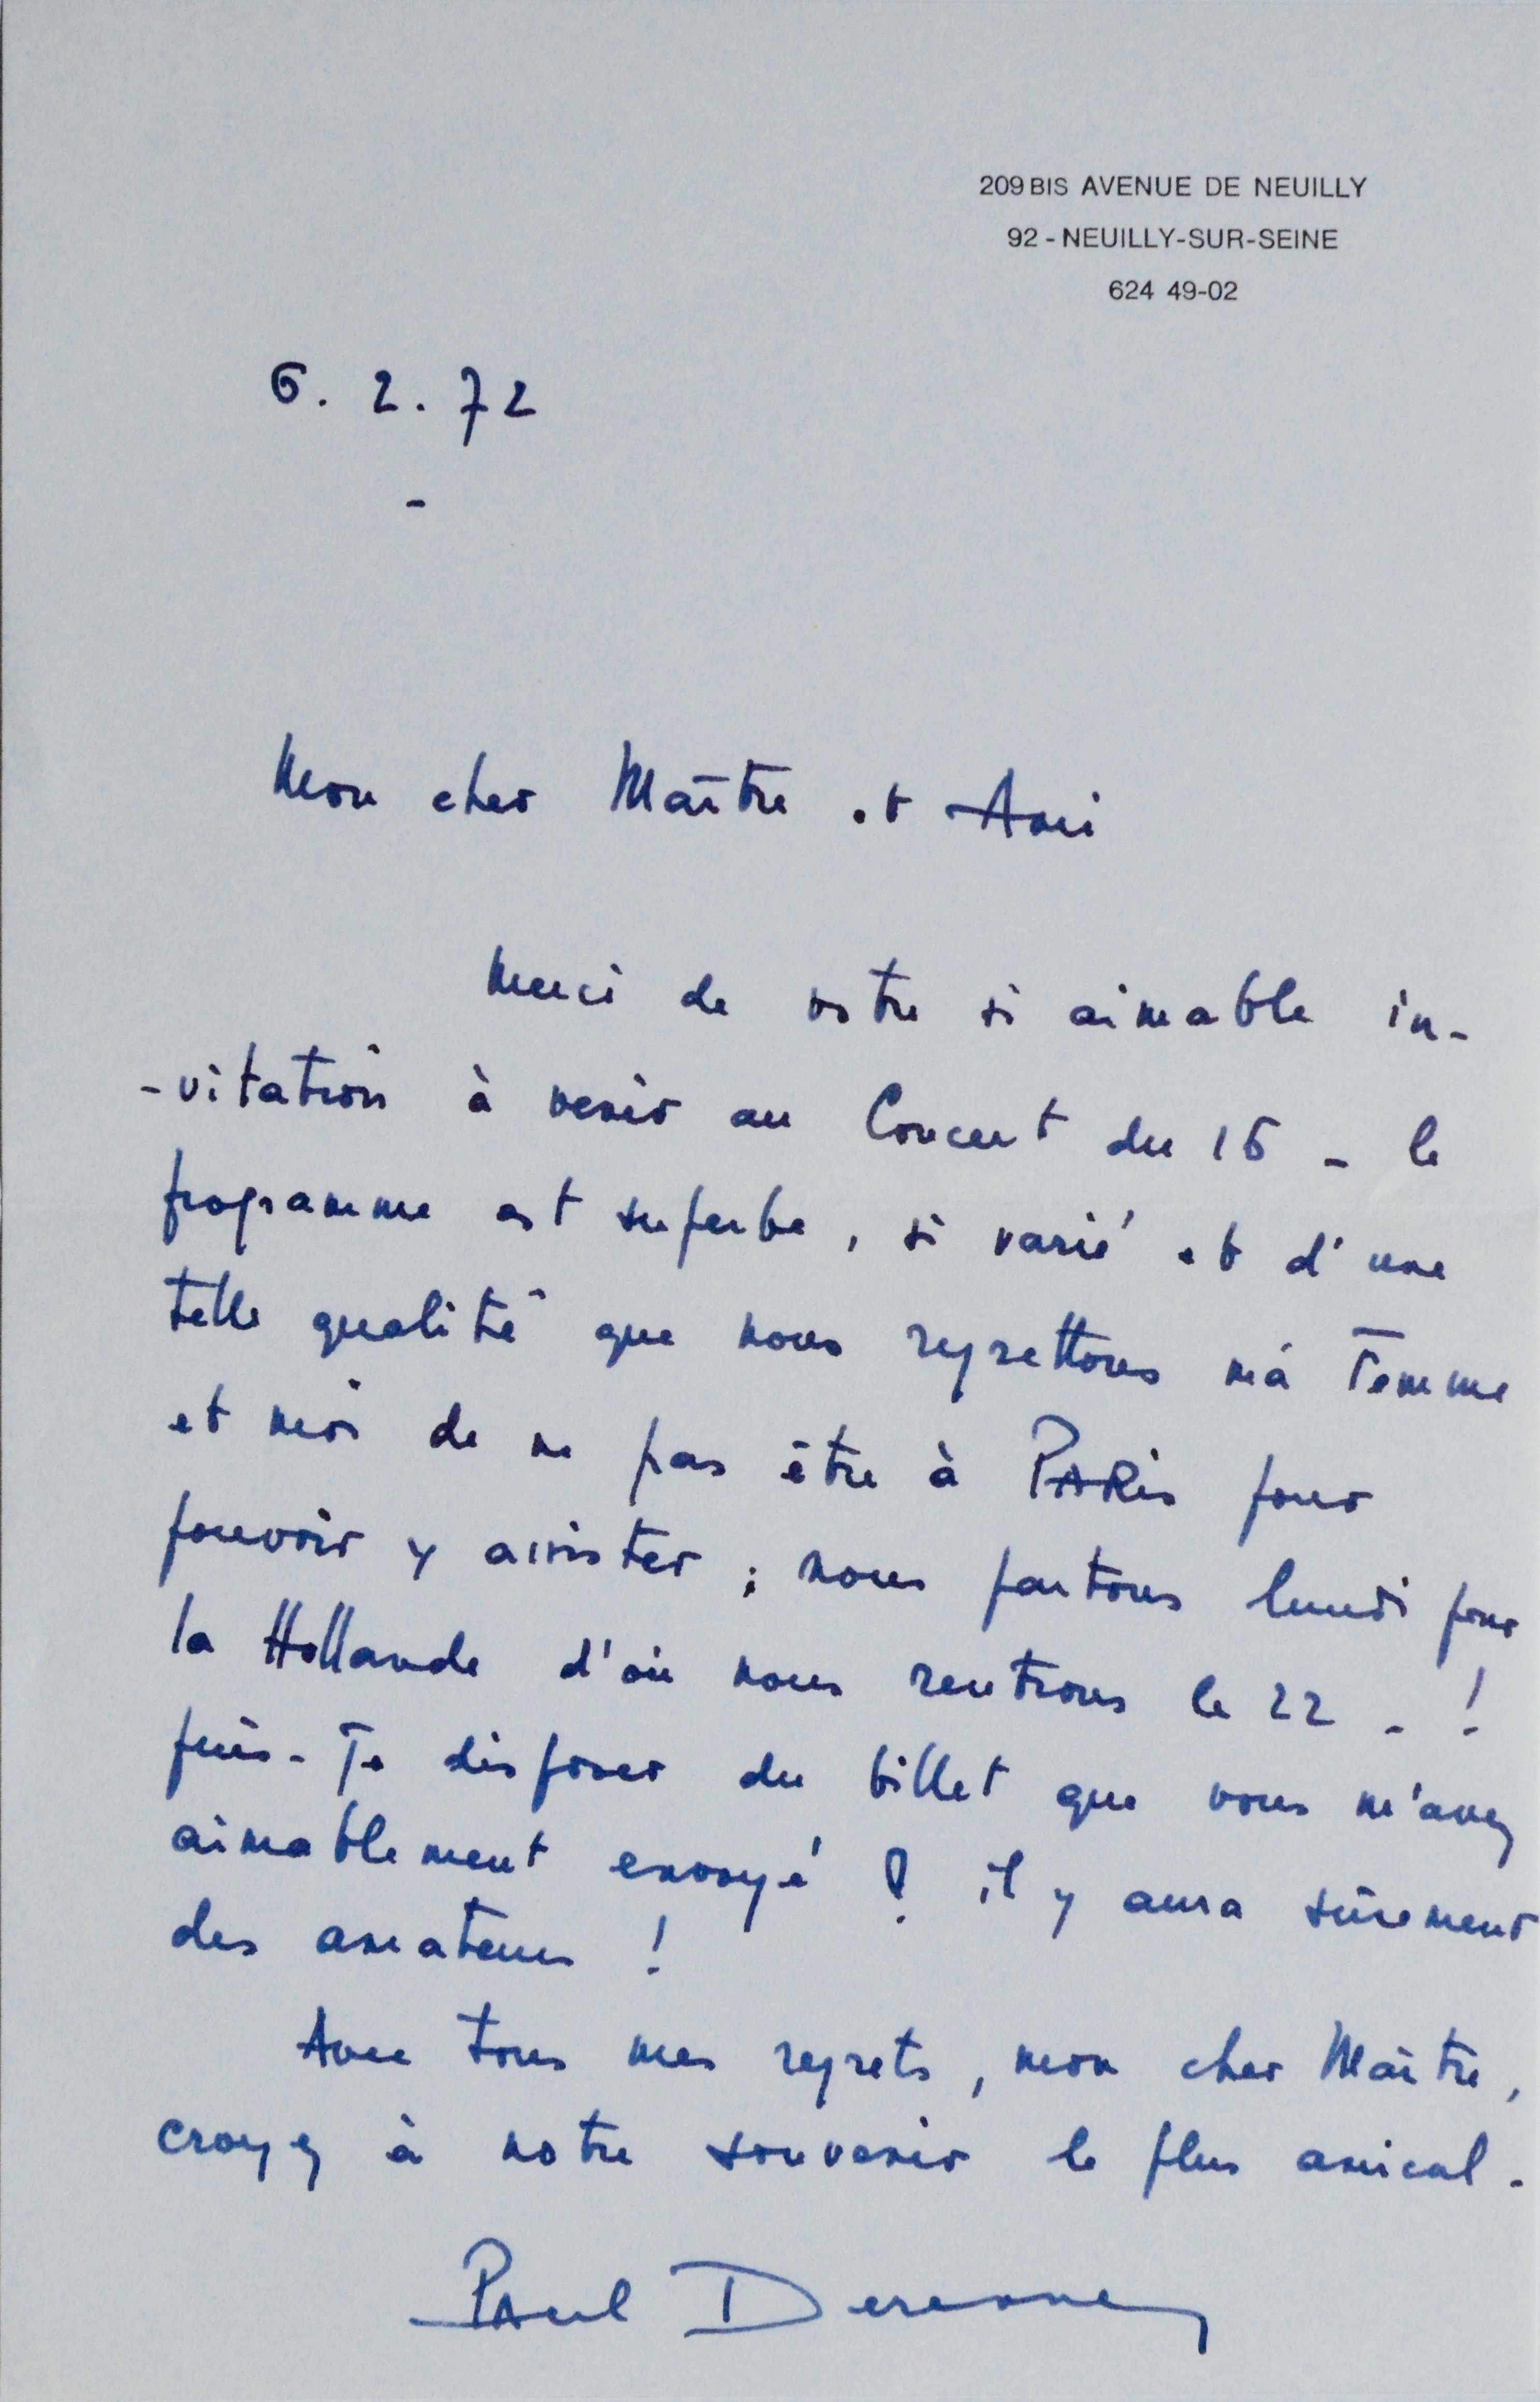 209 BIS AVENUE DE NEUILLY
92 - NEUILLY-SUR-SEINE
624 49-02
6. 2. 72
-
Mon cher Maître et Ami
Merci de votre si aimable in-
-vitation à venir au Concert du 15 - le
programme est superbe, si varié et d'une
telle qualité que nous regrettons ma Femme
et moi de ne pas être à PARis pour
pouvoir y assister ; nous partons lundi pour
la Hollande d'où nous rentrons le 22 - !
puis-Je disposer du billet que vous m'avez
aimablement envoyé ? il y aura sûrement
des amateurs !
Avec tous mes regrets, mon cher Maître,
croyez à notre souvenir le plus amical.
PAul Derenne